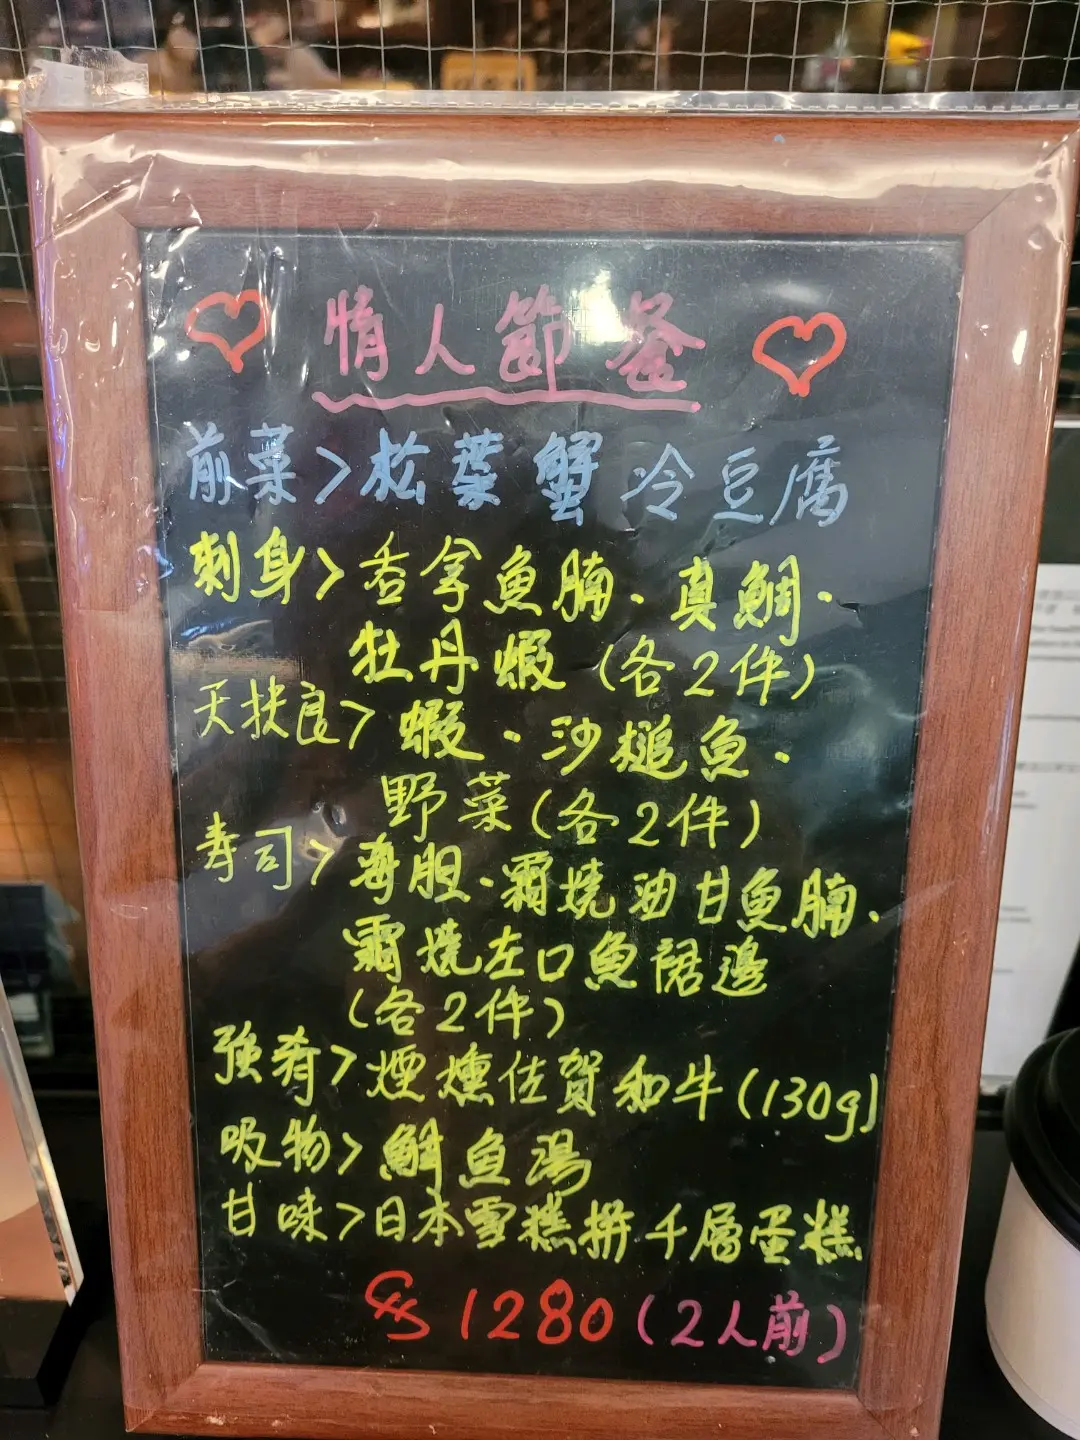 情人節餐
前菜>松葉蟹冷豆腐
刺身>吞拿魚腩、真鯛、
牡丹蝦(各2件)
天扶良>蝦、沙鎚魚、
野菜(各2件)
寿司>海胆、霜燒油甘魚腩、
霜燒左口魚裙邊
(各2件)
強肴>煙燻佐賀和牛(130g)
吸物>鯛魚湯
甘味>日本雪糕拼千層蛋糕
$1280(2人前)